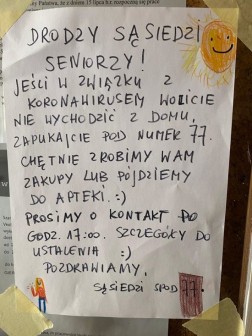 by Państwa, że z dniem 15 lipca br. rozpoczną się prace
DRODZY SĄSIEDZI
SENIORZY!
JEŚLI W ZWIĄZKU Z
KORONAWIRUSEM WOLICIE
NIE WYCHODZIĆ Z DOMU,
ZAPUKAJCIE POD NUMER 77.
CHĘTNIE ZROBIMY WAM
ZAKUPY LUB PÓJDZIEMY
DO APTEKI. :)
PROSIMY O KONTAKT PO
GODZ. 17:00. SZCZEGÓŁY DO
USTALENIA :)
POZDRAWIAMY,
SĄSIEDZI SPOD 77.